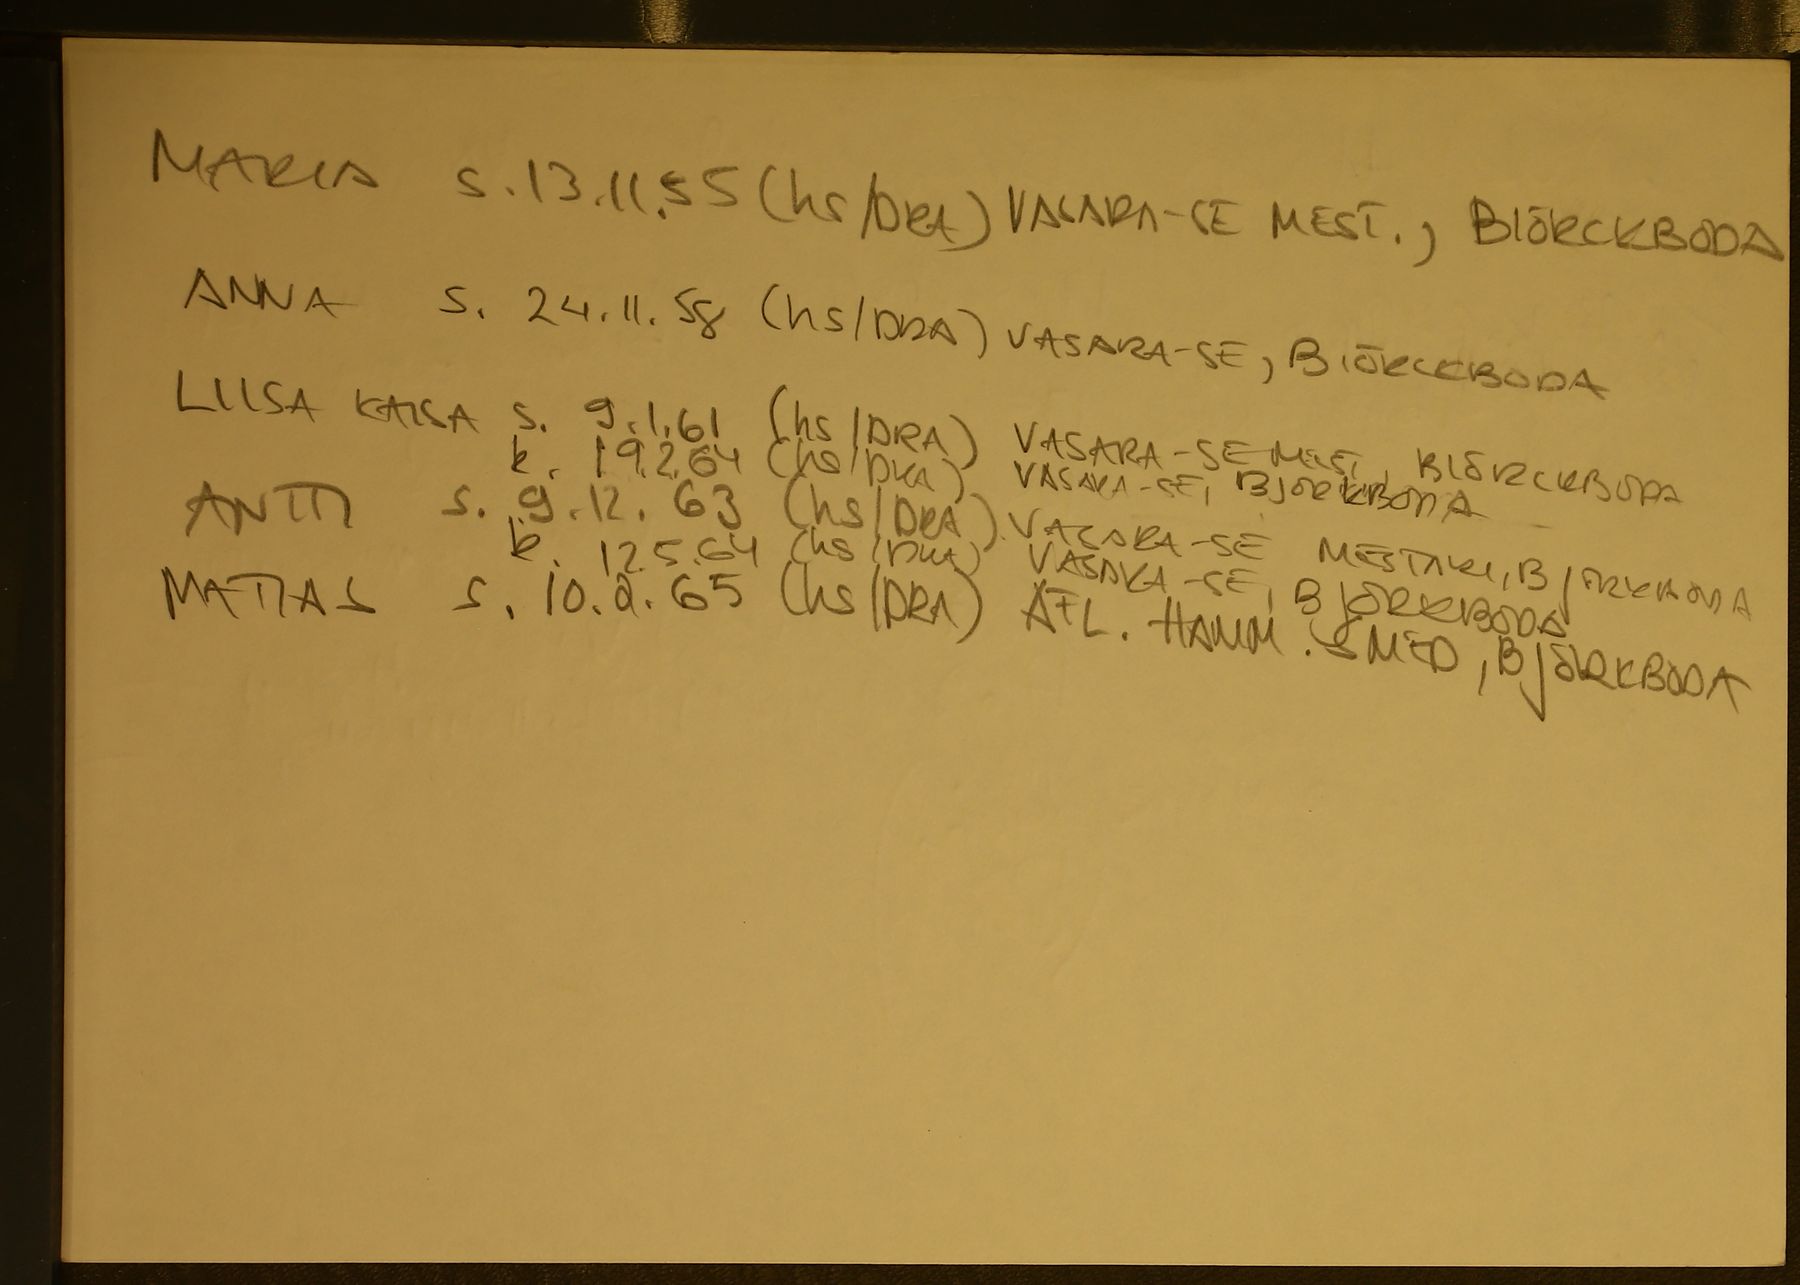 MARIA s. 13.11.55 (hs/DRA) VASARA-SE MEST., BIÖRCKBODA
ANNA s. 24.11.58 (hs/DRA) VASARA-SE, BIÖRCKBODA
LIISA KAISA s. 9.1.61 (hs/DRA) VASARA-SE MEST, BIÖRCKBODA
k. 19.2.64 (hs/DRA) VASARA-SE, BJÖRKBODA
ANTTI s. 9.12.63 (hs/DRA) VASARA-SE MESTARI, BJÖRKBODA
k. 12.5.64 (hs/DRA) VASARA-SE, BJÖRKBODA
MATIAS s. 10.2.65 (hs/DRA) ÄFL. HAMM.SMED, BJÖRKBODA